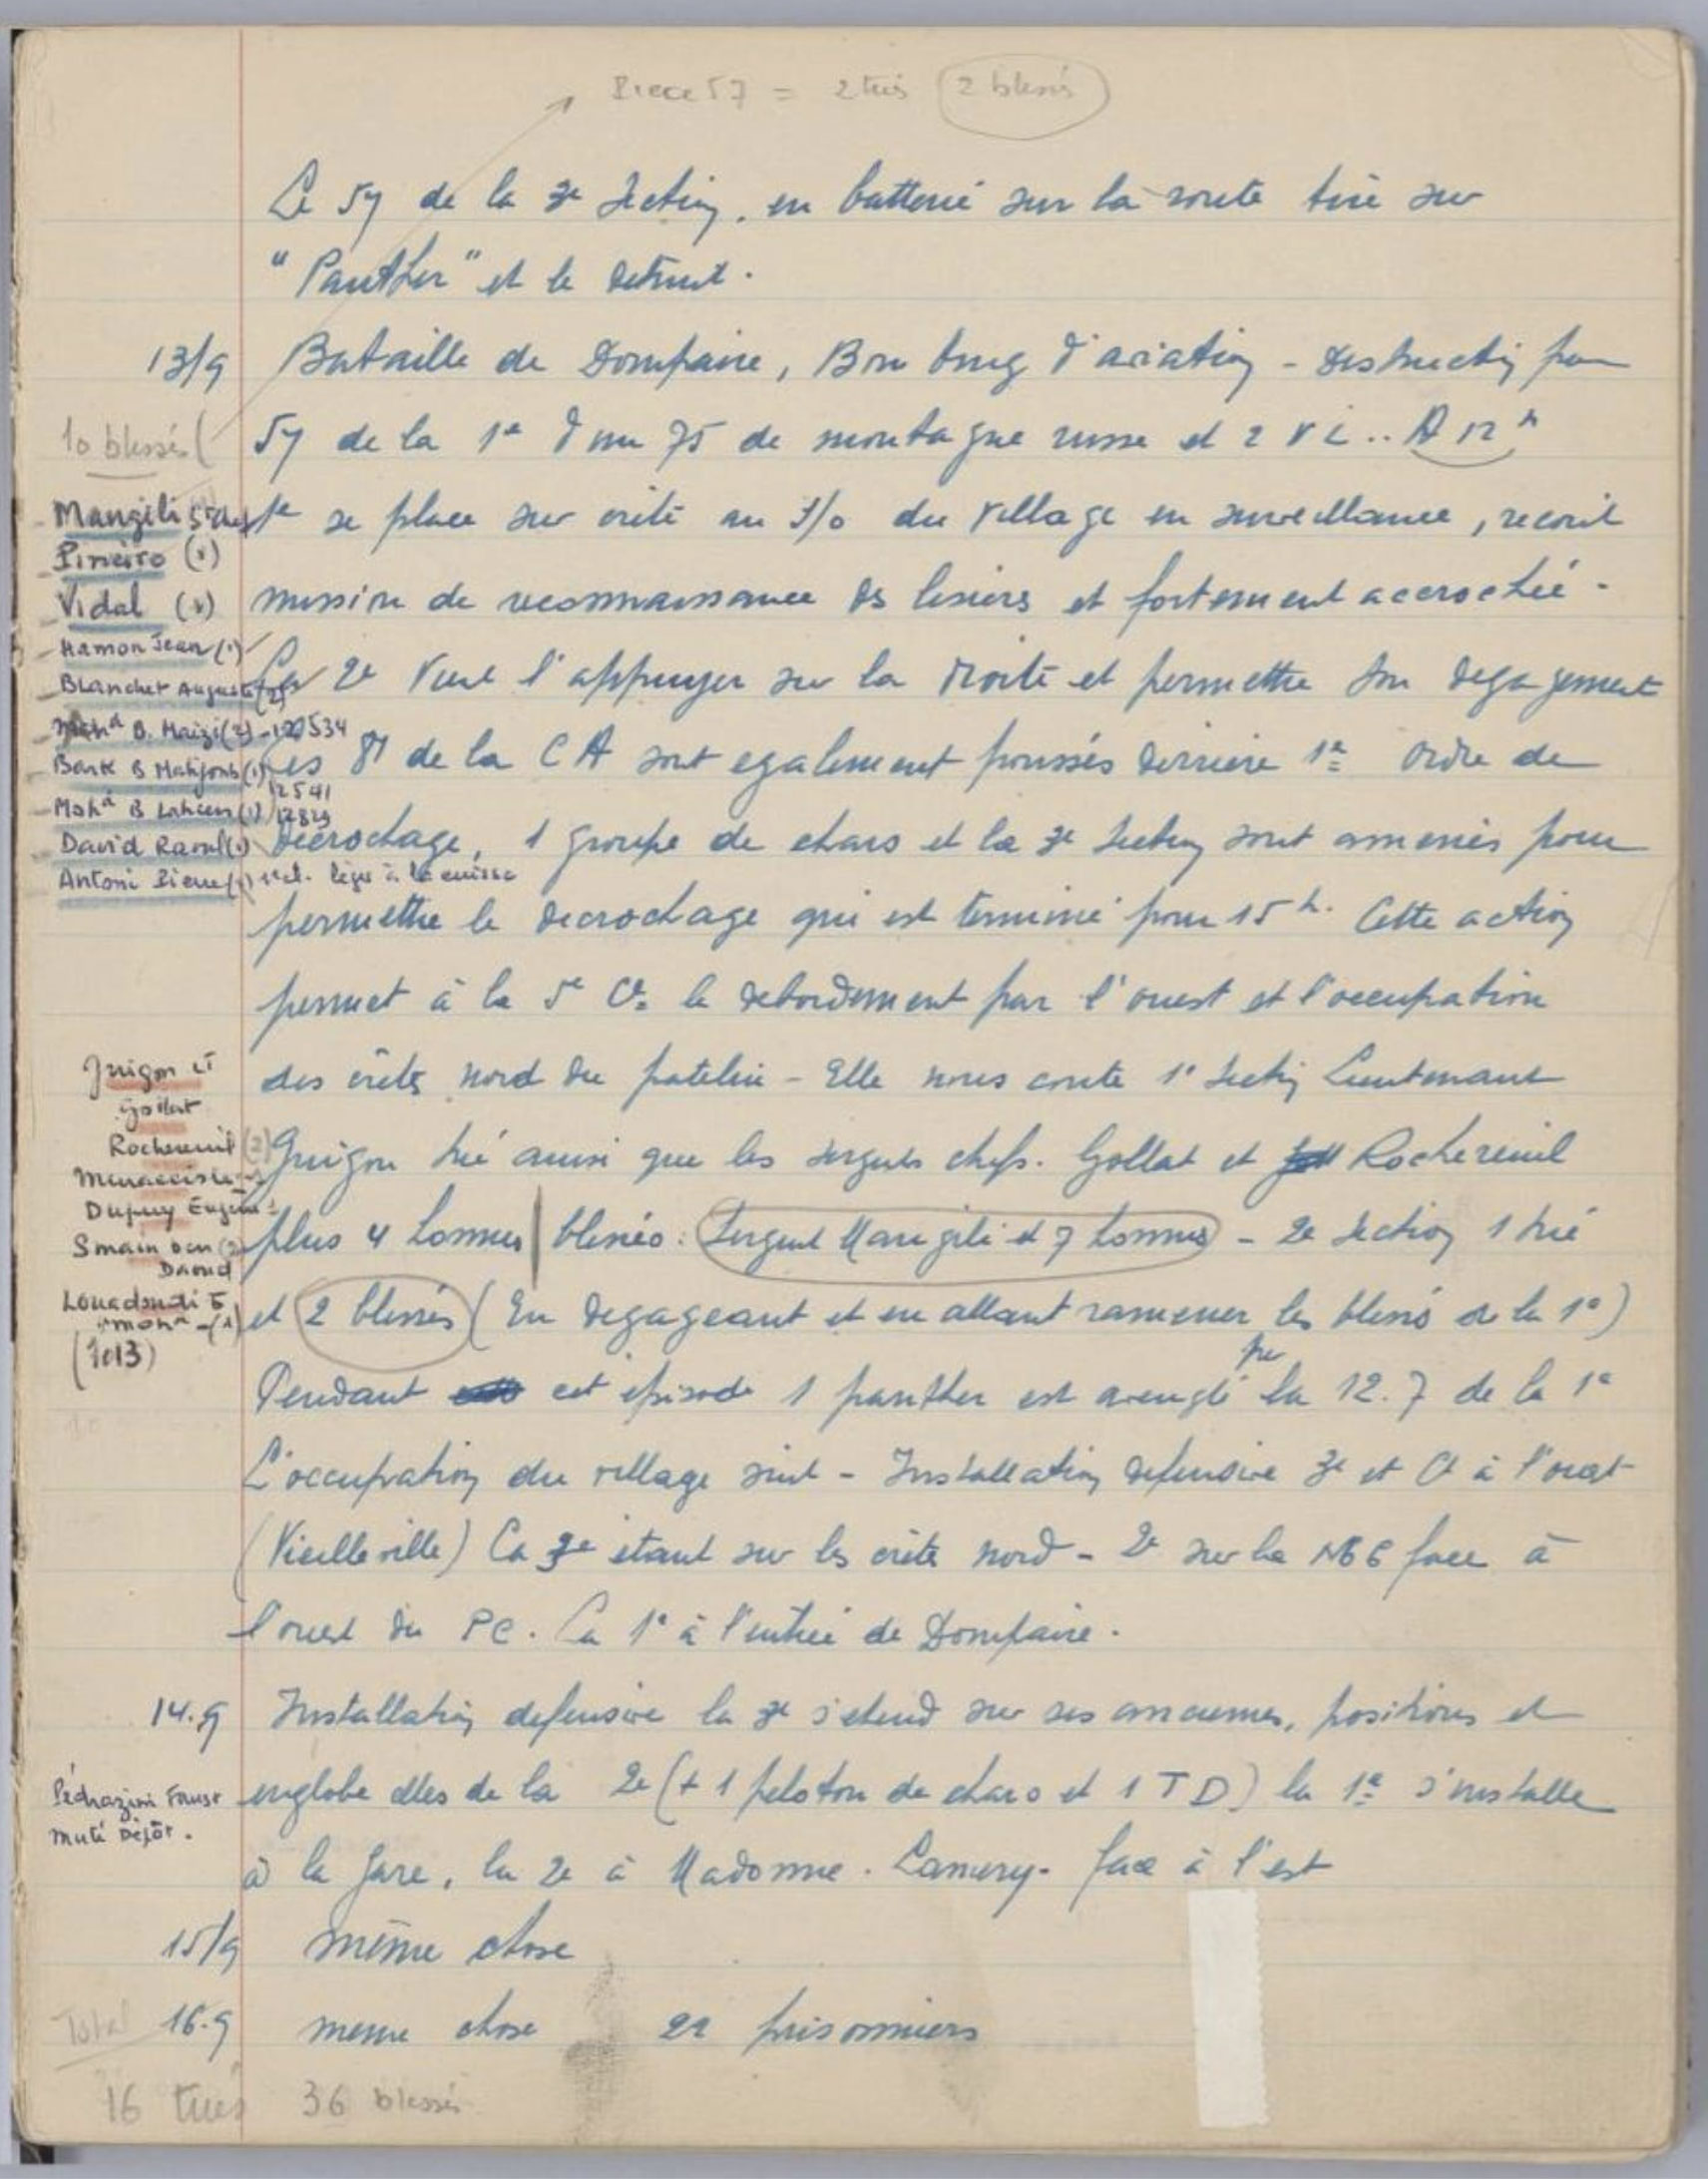 Piece 57 = 2 tués (2 blessés)
Le 57 de la 3e Section, en batterie sur la route tire sur
"Panther" et le detruit.
13/9 Bataille de Dompaire, Bon bing d'aviation - Destruction par
10 blessés (
57 de la 1e d'un 75 de montagne russe et 2 VL.. A 12h
Mangili St chef
1e se place sur crête au S/O du village en surveillance, recoit
Pineiro (1)
Vidal (1)
mission de reconnaissance des lisières et fortement accrochée -
Hamon Jean (1)
Blanchet Auguste (2)
La 2e vient l'appuyer sur la droite et permettre son degagement
Mohd B. Maizi (2) - 12534
Bark B Mahjoub (1) 12541
Les 81 de la CA sont egalement poussés derrière 1e ordre de
Mohd B Lahcen (1) 12829
David Raoul (1)
decrochage, 1 groupe de chars et la 3e Section sont amenés pour
Antoni Pierre (1) léger à la cuisse
permettre le decrochage qui est terminé pour 15h. Cette action
permet à la 5e Cie le debordement par l'ouest et l'occupation
Guigon Lt
des crêtes nord du patelin - Elle nous coute 1e Section Lieutenant
Gollat
Rochereuil (2)
Guigon tué ainsi que les sergents chefs. Gollat et Rochereuil
Dupuy Eugène
plus 4 hommes | blessés : Sergent Mangili et 7 hommes - 2e Section 1 tué
Smain ben Daoud
Mohd - (1)
et 2 blessés (En degageant et en allant ramener les blessés de la 1e)
(1013)
Pendant cet episode 1 panther est aveuglé par la 12.7 de la 1e
L'occupation du village suit - Installation defensive 3e et Ct à l'ouest
(Vieilleville) La 3e étant sur les crêtes nord - 2e sur la N66 face à
l'ouest du PC. La 1e à l'entrée de Dompaire.
14.9 Installation defensive la 3e s'etend sur ses anciennes, positions et
Pédrazini Faust
muté Dépôt.
englobe elles de la 2e (+ 1 peloton de chars et 1 TD) la 1e s'installe
à la gare, la 2e à Madonne. Lamerey - face à l'est
15/9 même chose
Total
16.9 meme chose 22 prisonniers
16 tués 36 blessés